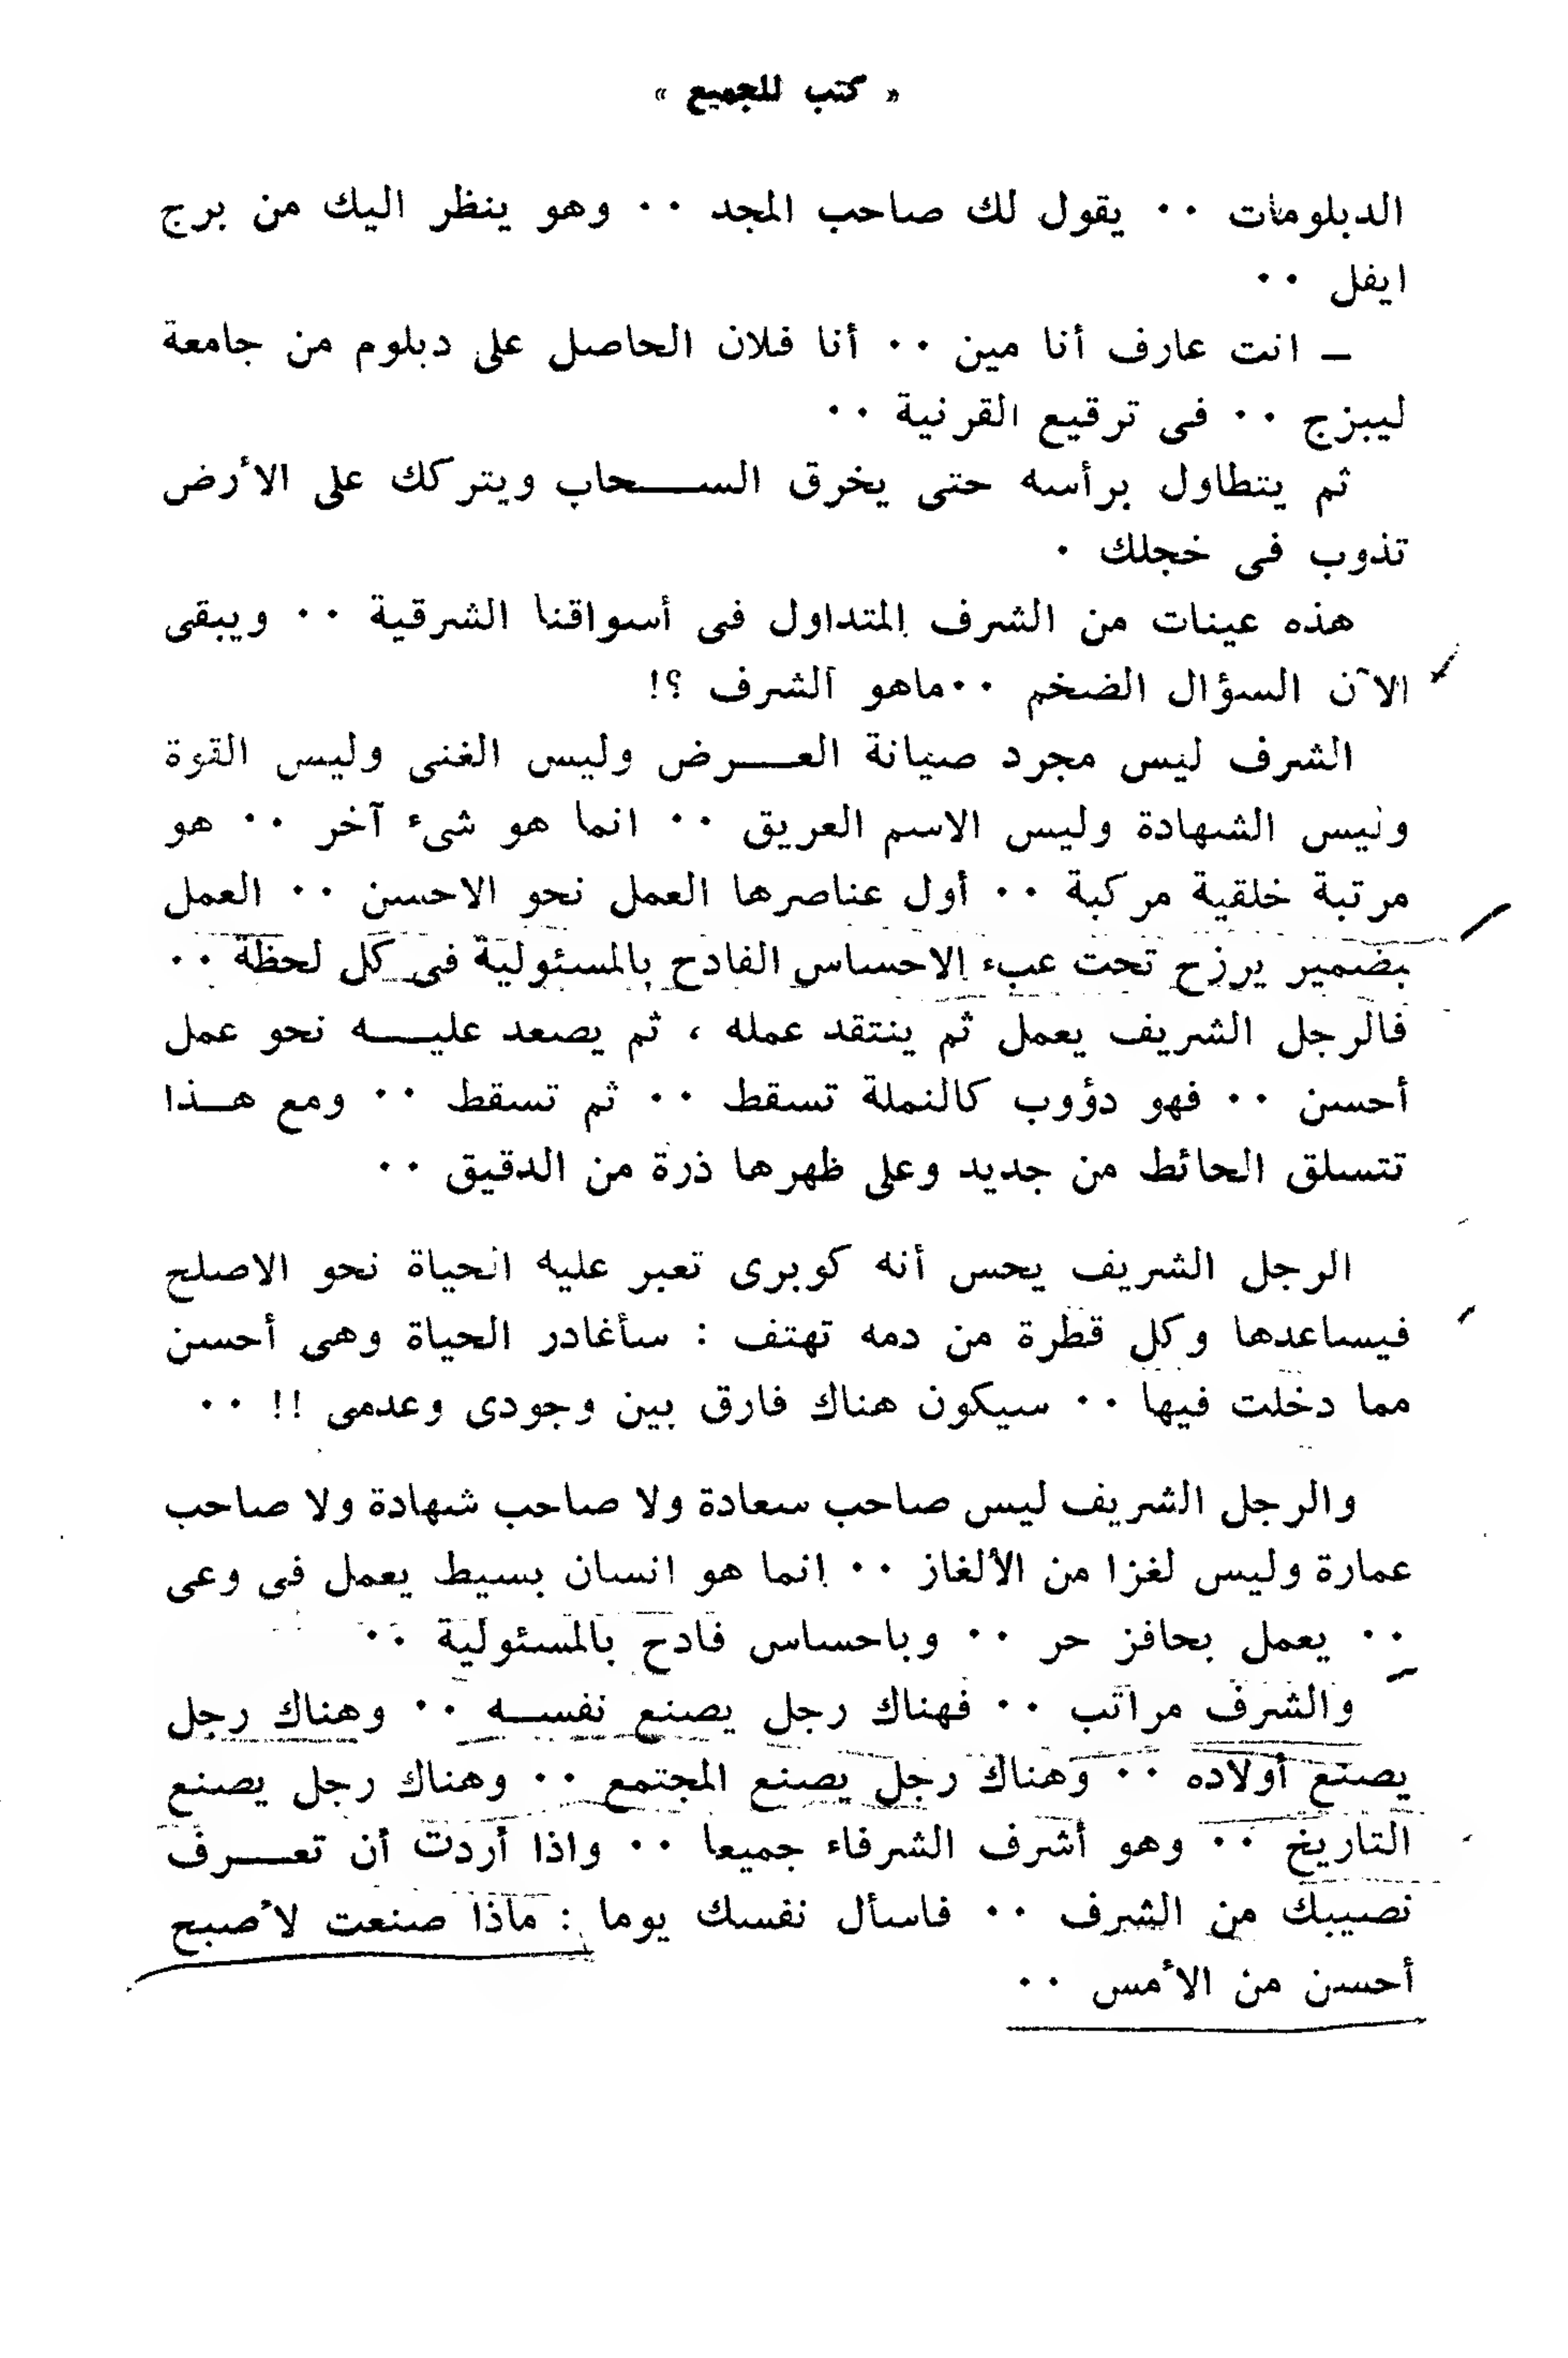 « كتب للجميع »
الدبلومات ٠٠ يقول لك صاحب المجد ٠٠ وهو ينظر اليك من برج
ايفل ٠٠
ـ انت عارف أنا مين ٠٠ أنا فلان الحاصل على دبلوم من جامعة
ليبزج ٠٠ فى ترقيع القرنية ٠٠
ثم يتطاول برأسه حتى يخرق الســـحاب ويتركك على الأرض
تذوب فى خجلك ٠
هذه عينات من الشرف المتداول فى أسواقنا الشرقية ٠٠ ويبقى
الآن السؤال الضخم ٠٠ماهو الشرف ؟!
الشرف ليس مجرد صيانة العـــرض وليس الغنى وليس القوة
وليس الشهادة وليس الاسم العريق ٠٠ انما هو شىء آخر ٠٠ هو
مرتبة خلقية مركبة ٠٠ أول عناصرها العمل نحو الاحسن ٠٠ العمل
بضمير يرزح تحت عبء الاحساس الفادح بالمسئولية فى كل لحظة ٠٠
فالرجل الشريف يعمل ثم ينتقد عمله ، ثم يصعد عليـــه نحو عمل
أحسن ٠٠ فهو دؤوب كالنملة تسقط ٠٠ ثم تسقط ٠٠ ومع هـــذا
تتسلق الحائط من جديد وعلى ظهرها ذرة من الدقيق ٠٠
الرجل الشريف يحس أنه كوبرى تعبر عليه الحياة نحو الاصلح
فيساعدها وكل قطرة من دمه تهتف : سأغادر الحياة وهى أحسن
مما دخلت فيها ٠٠ سيكون هناك فارق بين وجودى وعدمى !! ٠٠
والرجل الشريف ليس صاحب سعادة ولا صاحب شهادة ولا صاحب
عمارة وليس لغزا من الألغاز ٠٠ انما هو انسان بسيط يعمل فى وعى
٠٠ يعمل بحافز حر ٠٠ وباحساس فادح بالمسئولية ٠٠
والشرف مراتب ٠٠ فهناك رجل يصنع نفســه ٠٠ وهناك رجل
يصنع أولاده ٠٠ وهناك رجل يصنع المجتمع ٠٠ وهناك رجل يصنع
التاريخ ٠٠ وهو أشرف الشرفاء جميعا ٠٠ واذا أردت أن تعـــرف
نصيبك من الشرف ٠٠ فاسأل نفسك يوما : ماذا صنعت لأصبح
أحسن من الأمس ٠٠